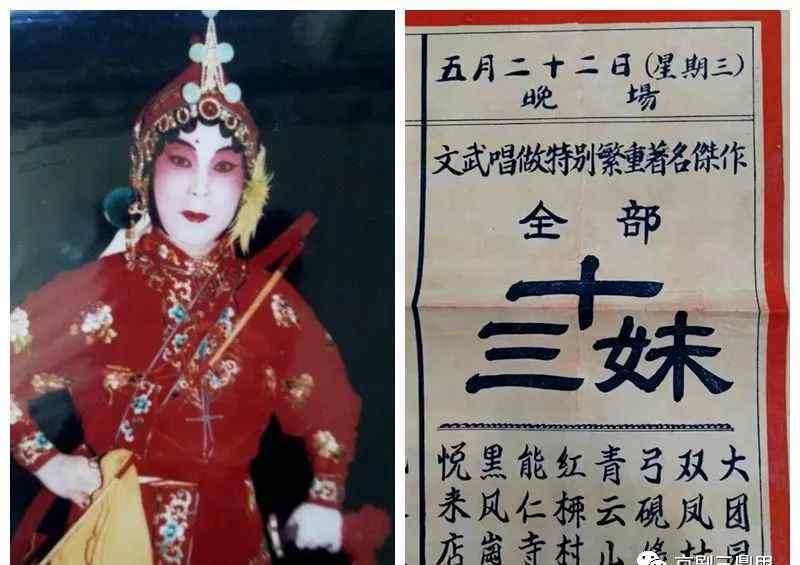 五月二十二日(星期三)
晚場
文武唱做特别繁重著名傑作
全部
十三妹
悦来店
黑风崗
能仁寺
红柳村
青云山
弓硯
双凤
大团